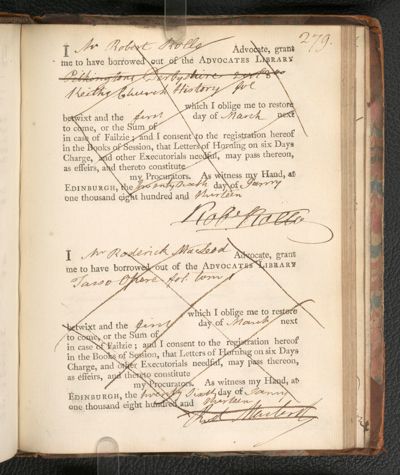 279.
I Mr Robert Rollo Advocate, grant
me to have borrowed out of the ADVOCATES LIBRARY
Pilkingtons Derbyshire 2 vol 8o
Keiths Church History fol
which I oblige me to restore
betwixt and the first day of March next
to come, or the Sum of
in case of Failzie; and I consent to the registration hereof
in the Books of Session, that Letters of Horning on six Days
Charge, and other Executorials needful, may pass thereon,
as effeirs, and thereto constitute
my Procurators. As witness my Hand, at
EDINBURGH, the twenty Sixth day of Janry
one thousand eight hundred and thirteen
Robt Rollo
I Mr Roderick Macleod Advocate, grant
me to have borrowed out of the ADVOCATES LIBRARY
Tasso Opere fol. tom 1
which I oblige me to restore
betwixt and the first day of March next
to come, or the Sum of
in case of Failzie; and I consent to the registration hereof
in the Books of Session, that Letters of Horning on six Days
Charge, and other Executorials needful, may pass thereon,
as effeirs, and thereto constitute
my Procurators. As witness my Hand, at
EDINBURGH, the twenty Sixth day of Janry
one thousand eight hundred and thirteen
Rod Macleod